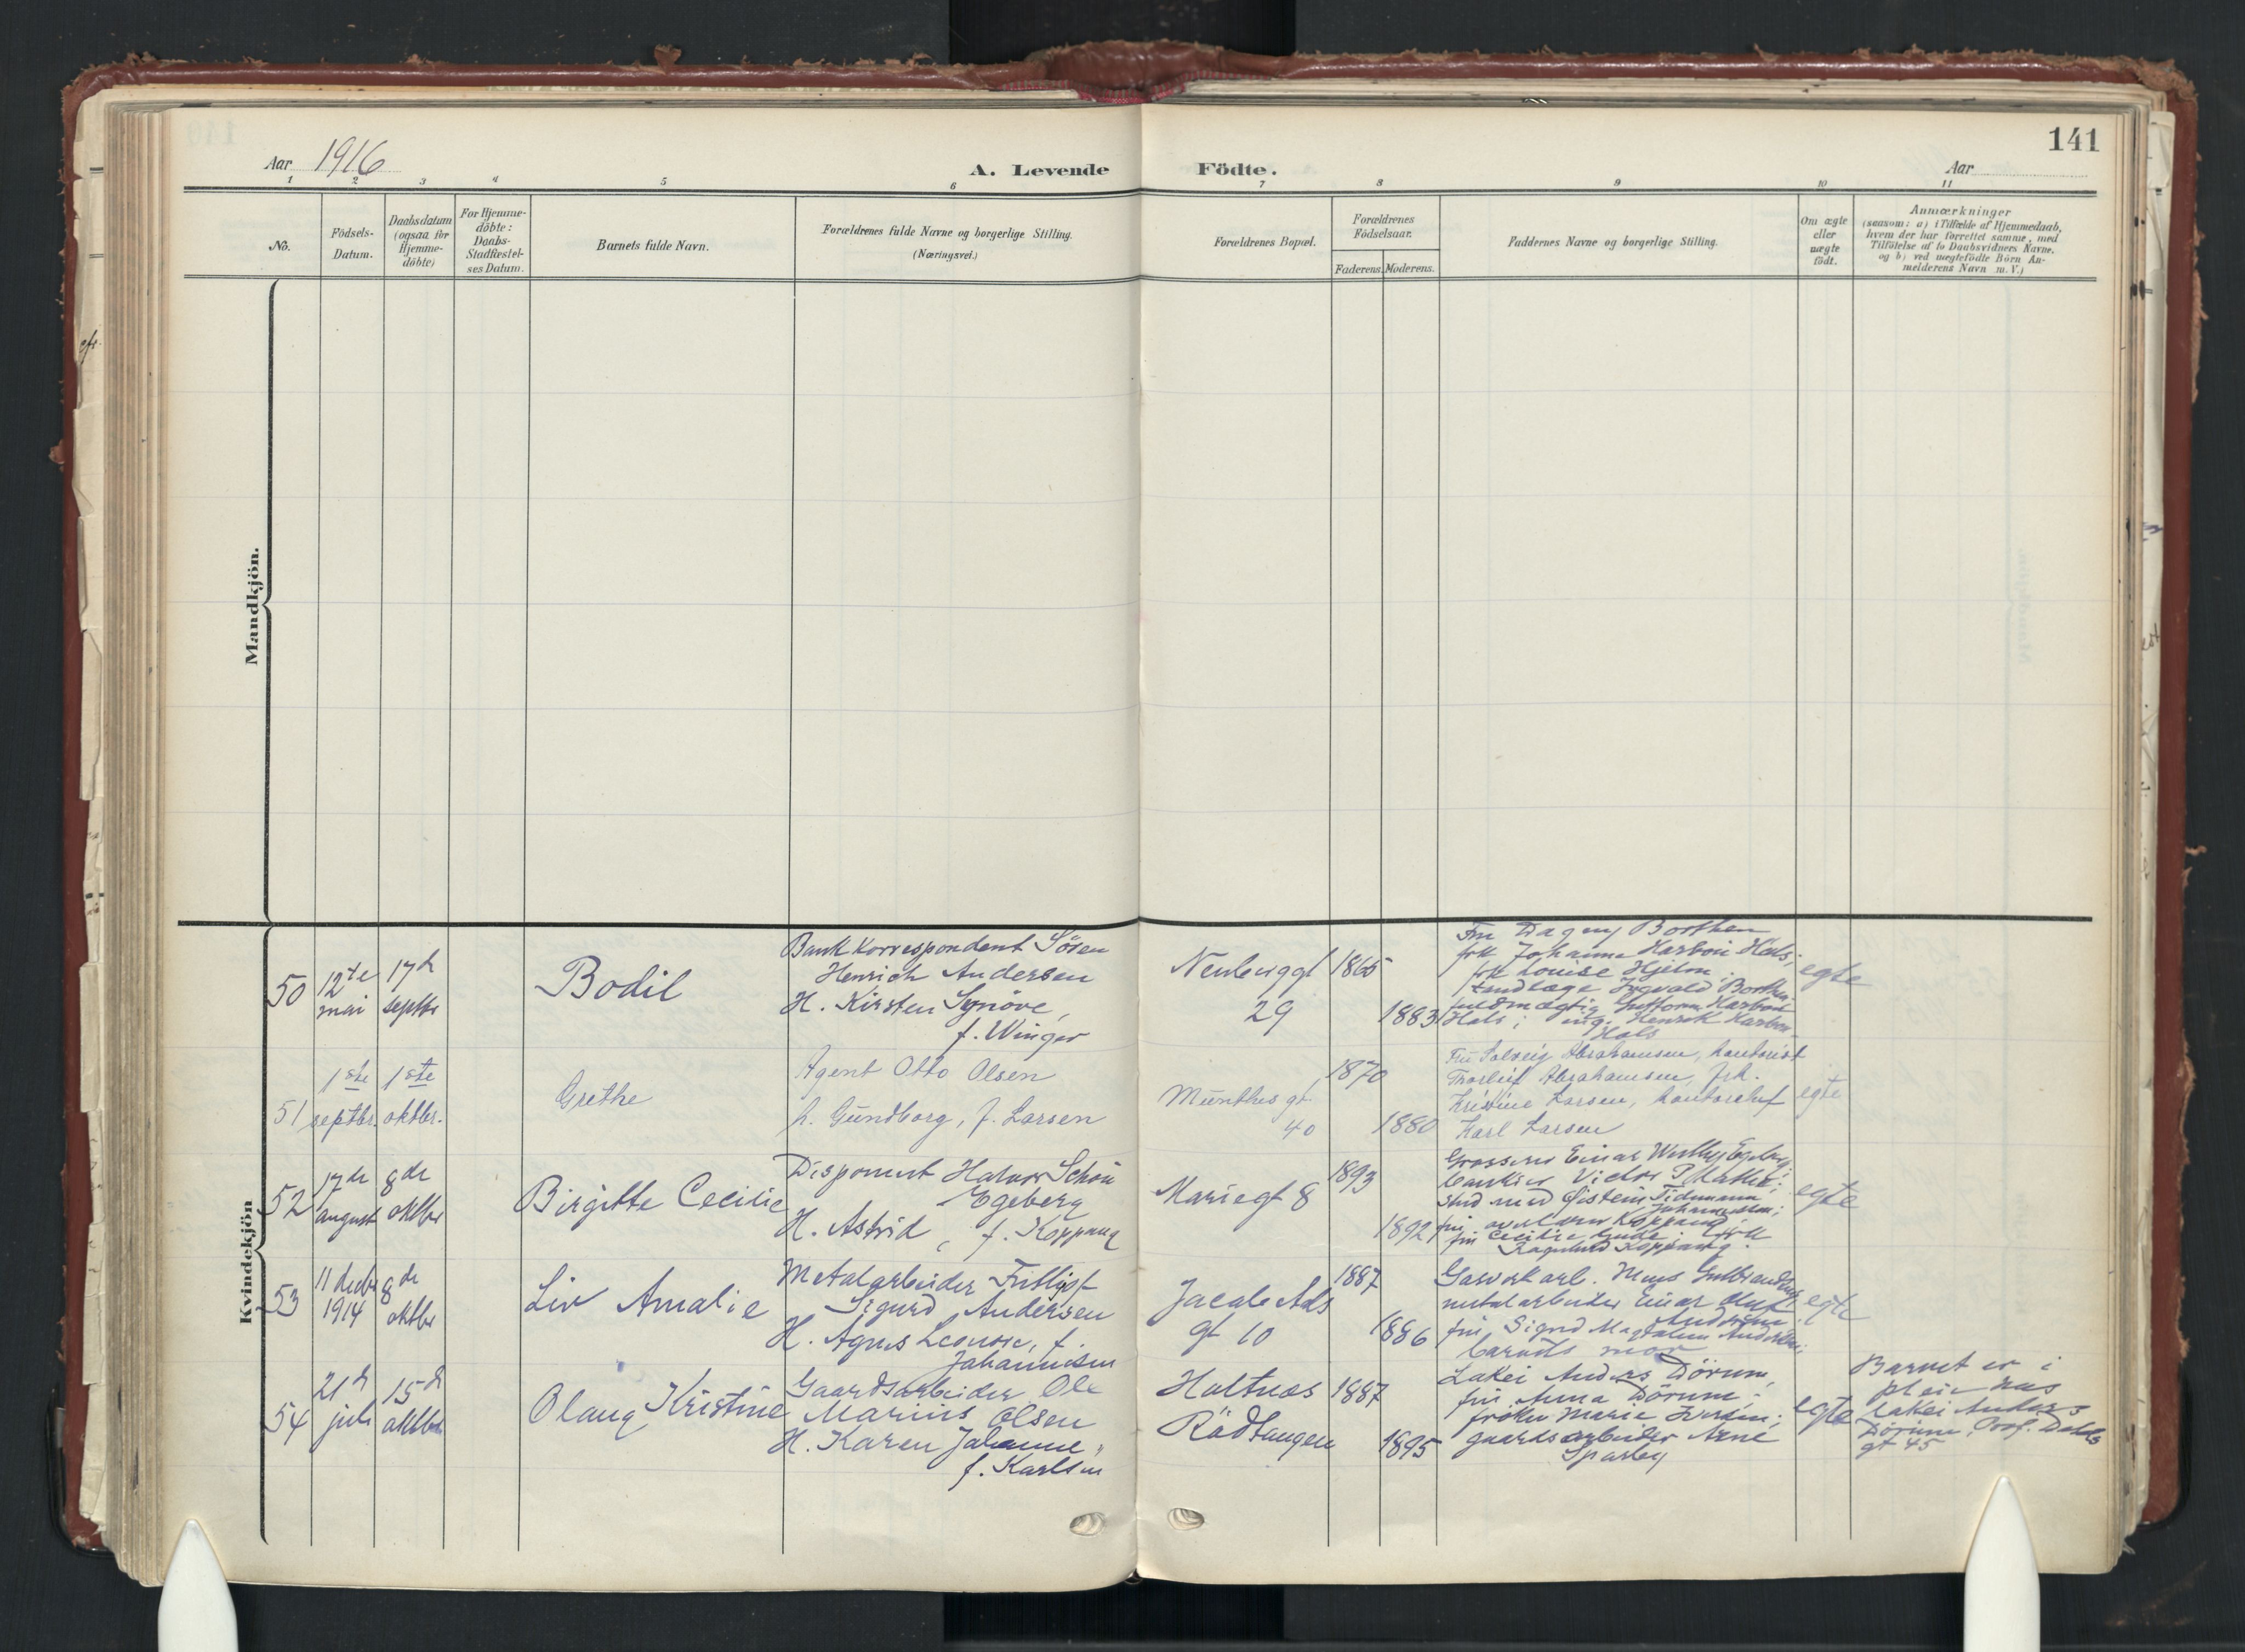 141
Aar 1916
A. Levende Födte.
Aar
1 2 3 4 5 6 7 8 9 10 11
No.
Födsels-
Datum.
Daabsdatum
(ogsaa for
Hjemme-
döbte)
For Hjemme-
döbte:
Daabs-
Stadfæstel-
ses Datum.
Barnets fulde Navn.
Forældrenes fulde Navne og borgerlige Stilling.
(Næringsvei.)
Forældrenes Bopæl.
Forældrenes
Födselsaar.
Faderens. Moderens.
Faddernes Navne og borgerlige Stilling.
Om ægte
eller
uægte
födt.
Anmærkninger
(saasom: a) i Tilfælde af Hjemmedaab,
hvem der har forrettet samme, med
Tilföielse af to Daabsvidners Navne.
og b) ved uægtefödte Börn An-
melderens Navn m. V.)
Mandkjön.
Kvindekjön
50
12te
mai
17de
septbr
Bodil
Bankkorrespondent Sören
Henrich Andersen
H. Kirsten Synöve,
f. Winger
Neuberggt
29
1865
1883
Fru Dagny Borthen
frk Johanna Harboe Hals;
frk Louise Hjelm;
tandlæge Ingvald Borthen
fuldmægtig Guttorm Harboe
Hals; ing. Henrik Harboe
Hals
egte
51
1ste
septbr.
1ste
oktbr.
Grethe
Agent Otto Olsen
h. Gundborg, f. Larsen
Munthes gt.
40
1870
1880
Fru Solveig Abrahamsen, kontorist
Thorleif Abrahamsen, frk.
Kristine Larsen, kontorchef
Karl Larsen
egte
52
17de
august
8de
oktbr
Birgitte Cecilie
Disponent Halvor Schou
Egeberg
H. Astrid, f. Koppang
Mariegt 8
1893
1892
Grosserer Einar Westby Egeberg;
bankier Victor P Mathie;
stud med Øistein Tidemann
Johannessen;
fru Koppang;
fru Cecilie Gude; frk
Ragnhild Koppang.
egte
53
11 decbr
1914
8de
oktbr
Liv Amalie
Metalarbeider Fritljof
Sigurd Andersen
H. Agnes Leonore, f.
Johannesen
Jacob Aals
gt 10
1887
1886
Gasverkarb. Mens Gulbrandsen;
metalarbeider Einar Oluf
Andersen;
fru Sigrid Magdalene Andersen;
barnets mor
egte
54
21de
juli
15de
oktbr
Olaug Kristine
Gaardsarbeider Ole
Marius Olsen
H. Karen Johanne,
f. Karlsen
Holtnæs
Rödtangen
1887
1895
Lakei Anders Dörum,
fru Anna Dörum;
fröken Marie Iversen;
gaardsarbeider Arne
Sparby
egte
Barnet er i
pleie hos
lakei Anders
Dörum, Prof. Dahls
gt 45